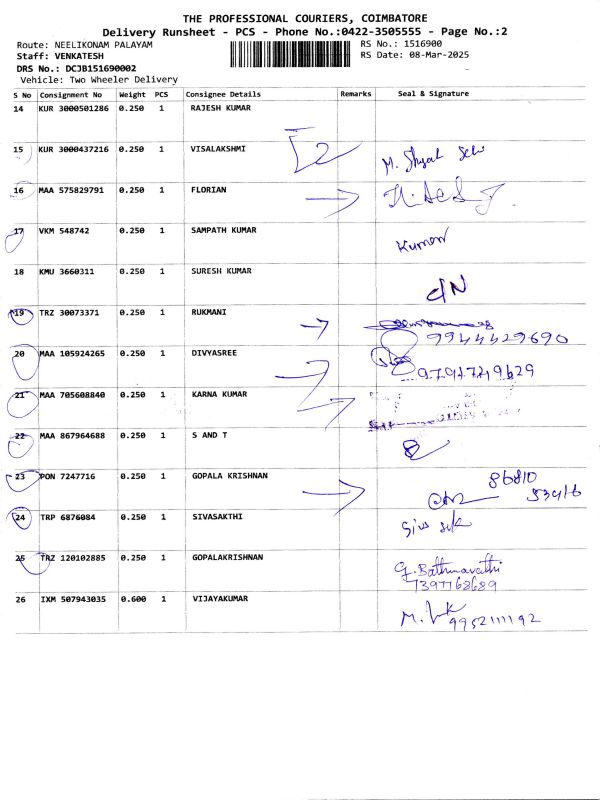 THE PROFESSIONAL COURIERS, COIMBATORE
Delivery Runsheet - PCS - Phone No.:0422-3505555 - Page No.:2
Route: NEELIKONAM PALAYAM
RS No.: 1516900
Staff: VENKATESH
RS Date: 08-Mar-2025
DRS No.: DCJB151690002
Vehicle: Two Wheeler Delivery
S No Consignment No Weight PCS Consignee Details Remarks Seal & Signature
14 KUR 3000501286 0.250 1 RAJESH KUMAR
15 KUR 3000437216 0.250 1 VISALAKSHMI
16 MAA 575829791 0.250 1 FLORIAN
17 VKM 548742 0.250 1 SAMPATH KUMAR Kumar
18 KMU 3660311 0.250 1 SURESH KUMAR
19 TRZ 30073371 0.250 1 RUKMANI
9944429690
20 MAA 105924265 0.250 1 DIVYASREE
9791749629
21 MAA 705608840 0.250 1 KARNA KUMAR
22 MAA 867964688 0.250 1 S AND T
23 PON 7247716 0.250 1 GOPALA KRISHNAN 86810
53416
24 TRP 6876084 0.250 1 SIVASAKTHI
25 TRZ 120102885 0.250 1 GOPALAKRISHNAN G.Bathmavathi
7397768689
26 IXM 507943035 0.600 1 VIJAYAKUMAR
9952111192